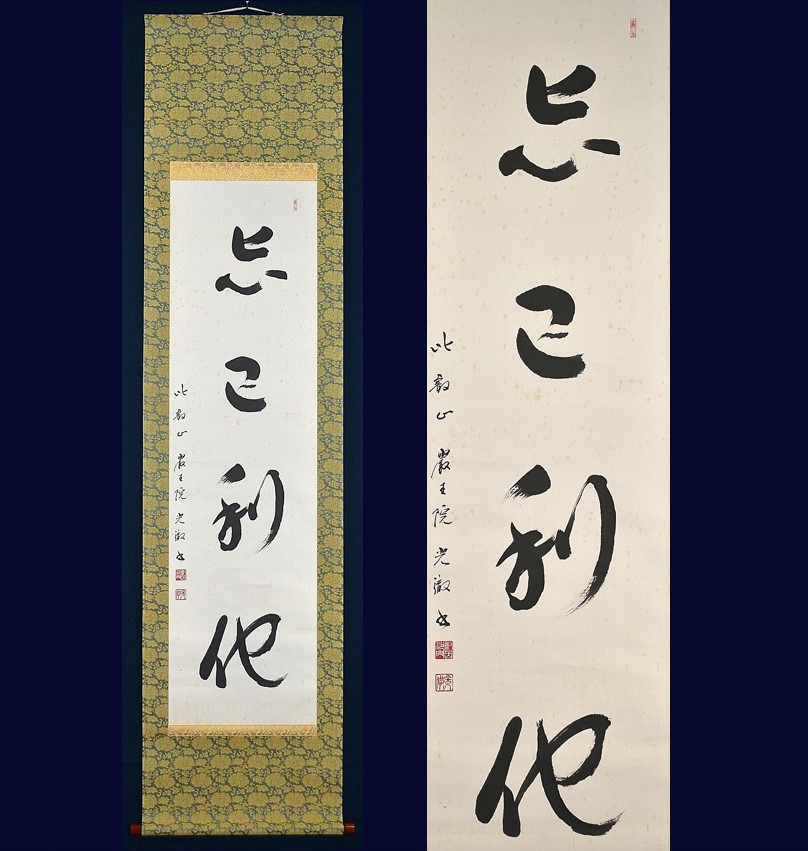 忘己利他
比叡山 嚴王院 光澈書
忘己利他
比叡山 嚴王院 光澈書